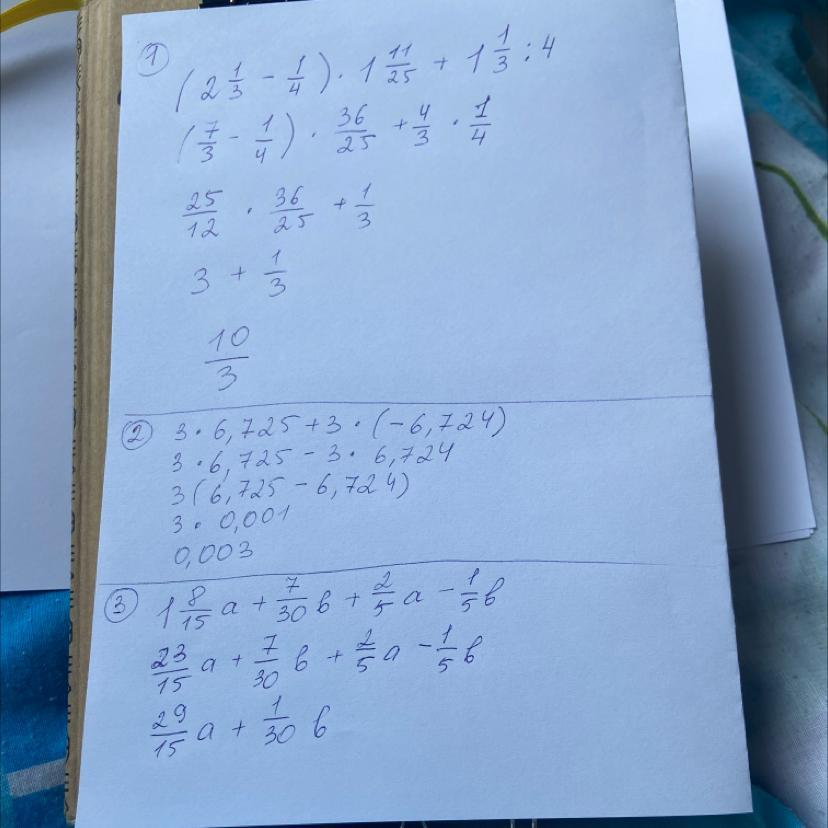 ① (2 1/3 - 1/4) · 1 11/25 + 1 1/3 : 4
(7/3 - 1/4) · 36/25 + 4/3 · 1/4
25/12 · 36/25 + 1/3
3 + 1/3
10/3
② 3 · 6,725 + 3 · (-6,724)
3 · 6,725 - 3 · 6,724
3(6,725 - 6,724)
3 · 0,001
0,003
③ 1 8/15 a + 7/30 b + 2/5 a - 1/5 b
23/15 a + 7/30 b + 2/5 a - 1/5 b
29/15 a + 1/30 b